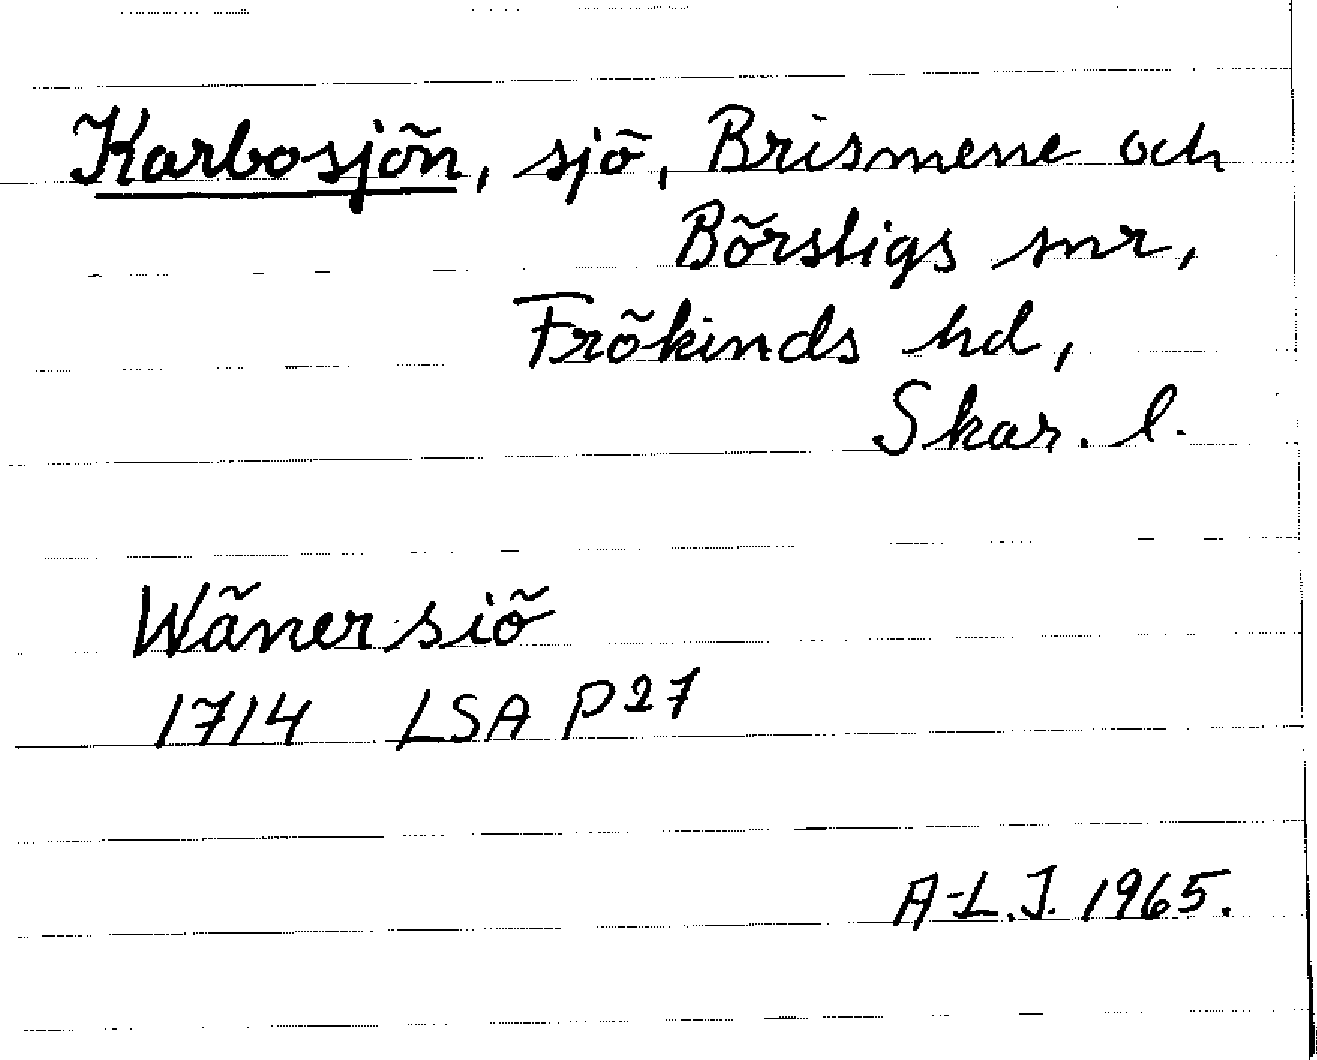 Karbosjön, sjö, Brismene och
Börstigs snr,
Frökinds hd,
Skar. l.
Wäner siö
1714 LSA P27
A-L.J. 1965.